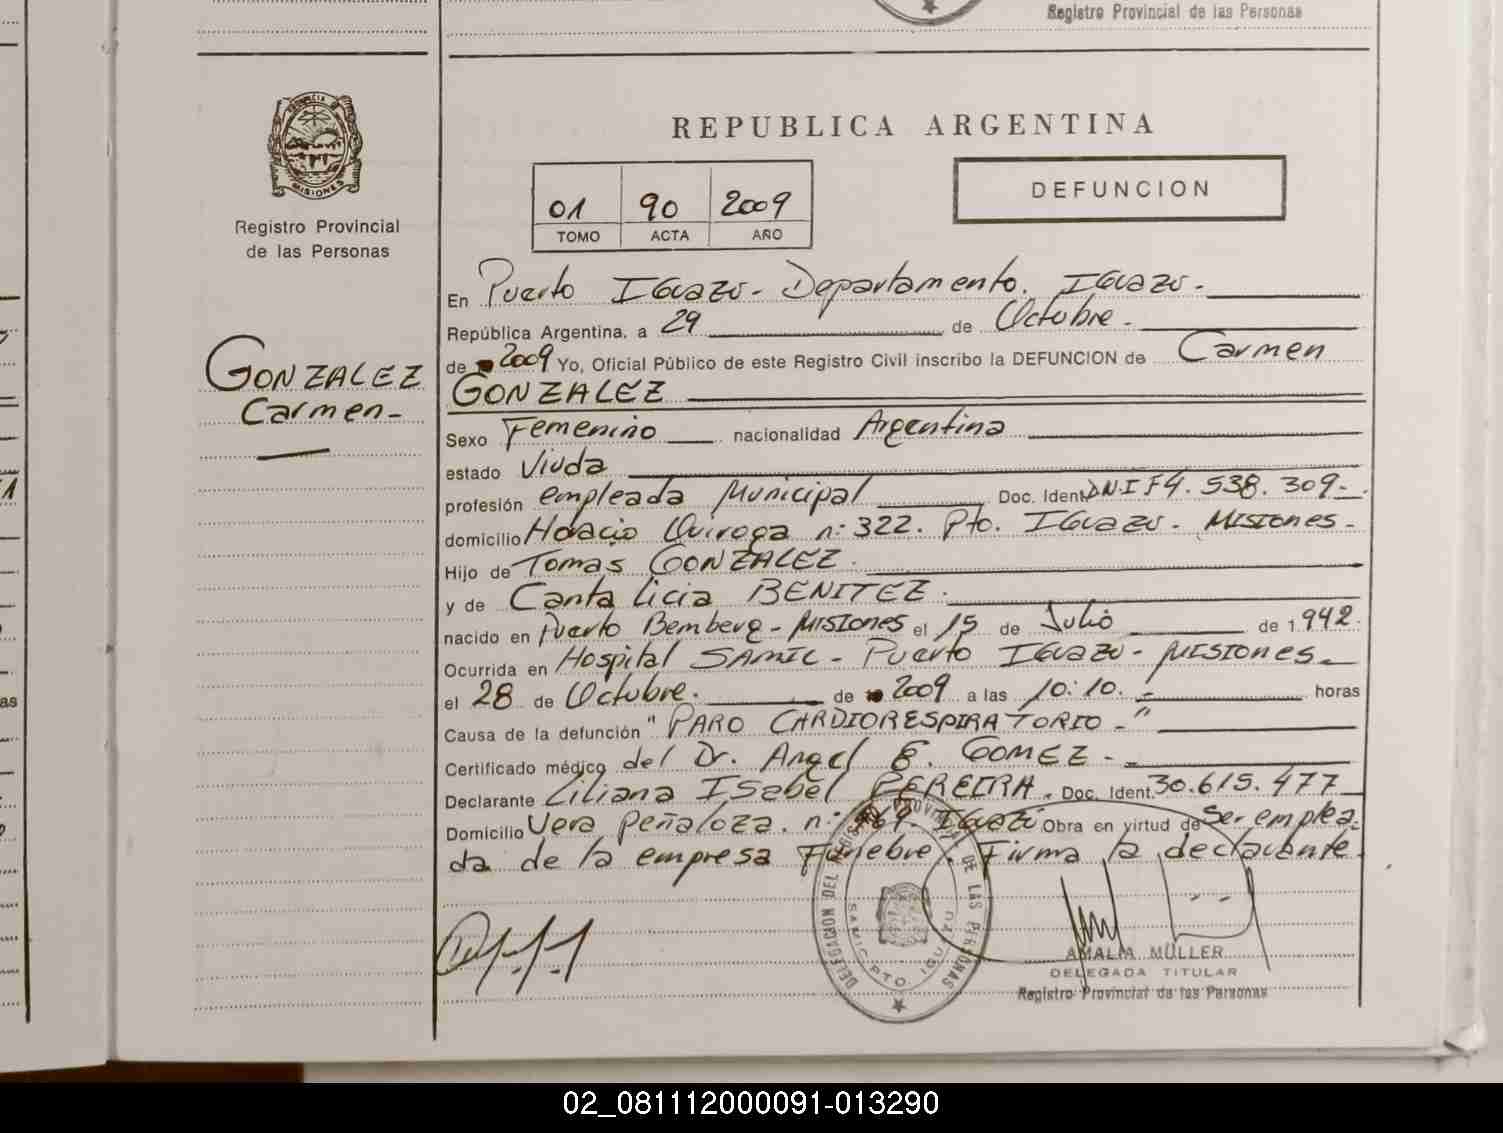 Registro Provincial de las Personas
PROVINCIA DE
MISIONES
Registro Provincial
de las Personas
GONZALEZ
Carmen -
REPUBLICA ARGENTINA
01 90 2009
TOMO ACTA AÑO
DEFUNCION
En Puerto IGUAZU - Departamento. IGUAZU -
República Argentina, a 29 de Octubre -
de 2009 Yo, Oficial Público de este Registro Civil inscribo la DEFUNCION de Carmen
GONZALEZ
Sexo Femenino nacionalidad Argentina
estado Viuda
profesión empleada Municipal Doc. Ident. DNI F4.538.309-
domicilio Horacio Quiroga n: 322. Pto. IGUAZU - MISIONES -
Hijo de Tomas GONZALEZ.
y de Cantalicia BENITEZ.
nacido en Puerto Bemberg - MISIONES el 15 de Julio de 1.942.
Ocurrida en Hospital SAMIC - Puerto IGUAZU - MISIONES -
el 28 de Octubre. de 2009 a las 10:10. horas
Causa de la defunción "PARO CARDIORESPIRATORIO -"
Certificado médico del Dr. Angel E. GOMEZ -
Declarante Liliana ISabel PEREIRA. Doc. Ident. 30.615.477
Domicilio Vera Peñaloza. n: Obra en virtud de Ser emplea-
da de la empresa Funebre. Firma la declarante
DELEGACION DEL REGISTRO PROVINCIAL DE LAS PERSONAS
SAMIC PTO. IGUAZU
AMALIA MÜLLER
DELEGADA TITULAR
Registro Provincial de las Personas
02_081112000091-013290